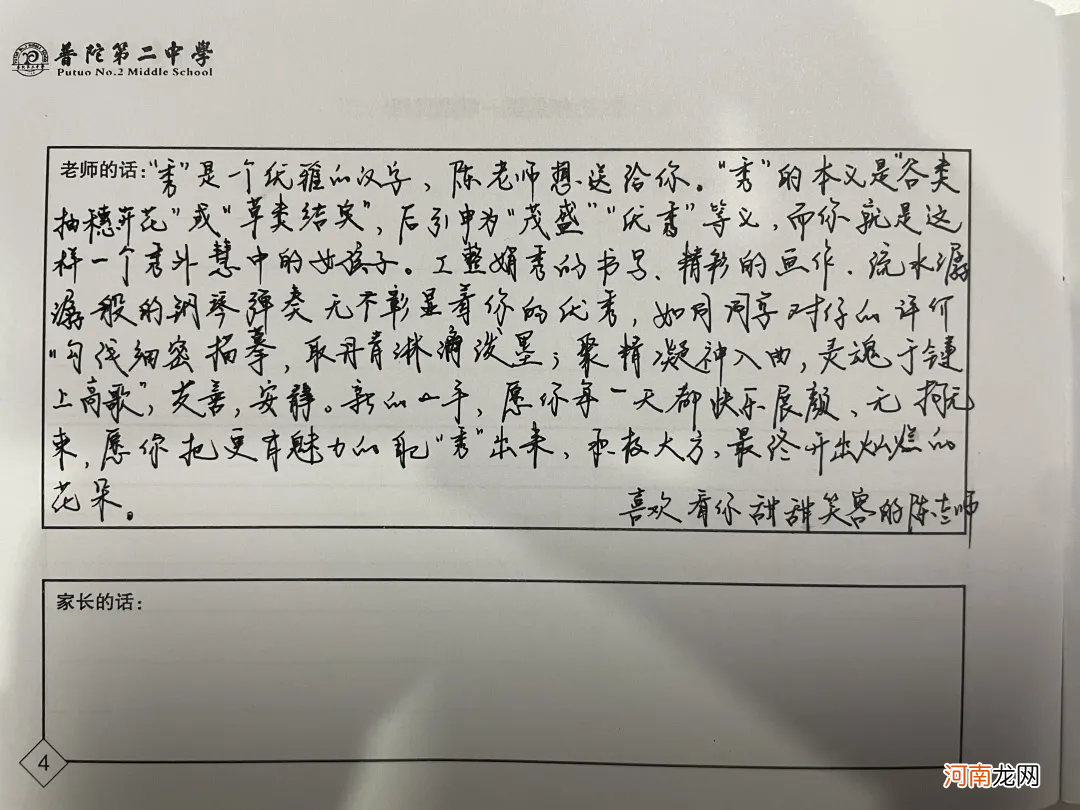 普陀第二中學
Putuo No.2 Middle School
老师的话："秀"是一个优雅的汉字，陈老师想送给你。"秀"的本义是"谷类
抽穗开花"或"草类结实"，后引申为"茂盛""优秀"等义，而你就是这
样一个秀外慧中的女孩子。工整娟秀的书写、精彩的画作、流水潺
潺般的钢琴弹奏无不彰显着你的优秀，如同同学对你的评价
"勾线细密描摹，取丹青淋漓泼墨；聚精凝神入曲，灵魂于键
上高歌"，友善，安静。新的一年，愿你每一天都快乐展颜、无拘无
束，愿你把更有魅力的自己"秀"出来，积极大方，最终开出灿烂的
花朵。
喜欢看你甜甜笑容的陈老师
家长的话：
4
河南龙网